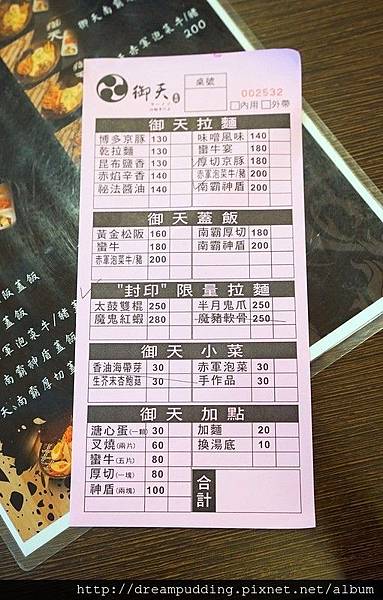 御天
桌號
002532
□內用 □外帶
御天拉麵
博多京豚 130 味噌風味 140
乾拉麵 130 蠻牛宴 180
昆布鹽香 130 厚切京豚 180
赤焰辛香 140 赤軍泡菜牛/豬 200
祕法醬油 140 南霸神盾 200
御天蓋飯
黃金松阪 160 南霸厚切 180
蠻牛 180 南霸神盾 200
赤軍泡菜牛/豬 200
"封印"限量拉麵
太鼓雙棍 250 半月鬼爪 250
魔鬼紅蝦 280 魔豬軟骨 250
御天小菜
香油海帶芽 30 赤軍泡菜 30
生芥末杏鮑菇 30 手作品 30
御天加點
溏心蛋(一顆) 30 加麵 20
叉燒(兩片) 60 換湯底 10
蠻牛(五片) 80
厚切(一塊) 80
神盾(兩塊) 100
合計
赤軍泡菜牛/豬
200
蓋飯
南霸神盾蓋飯
南霸厚切蓋飯
http://dreampudding.pixnet.net/album